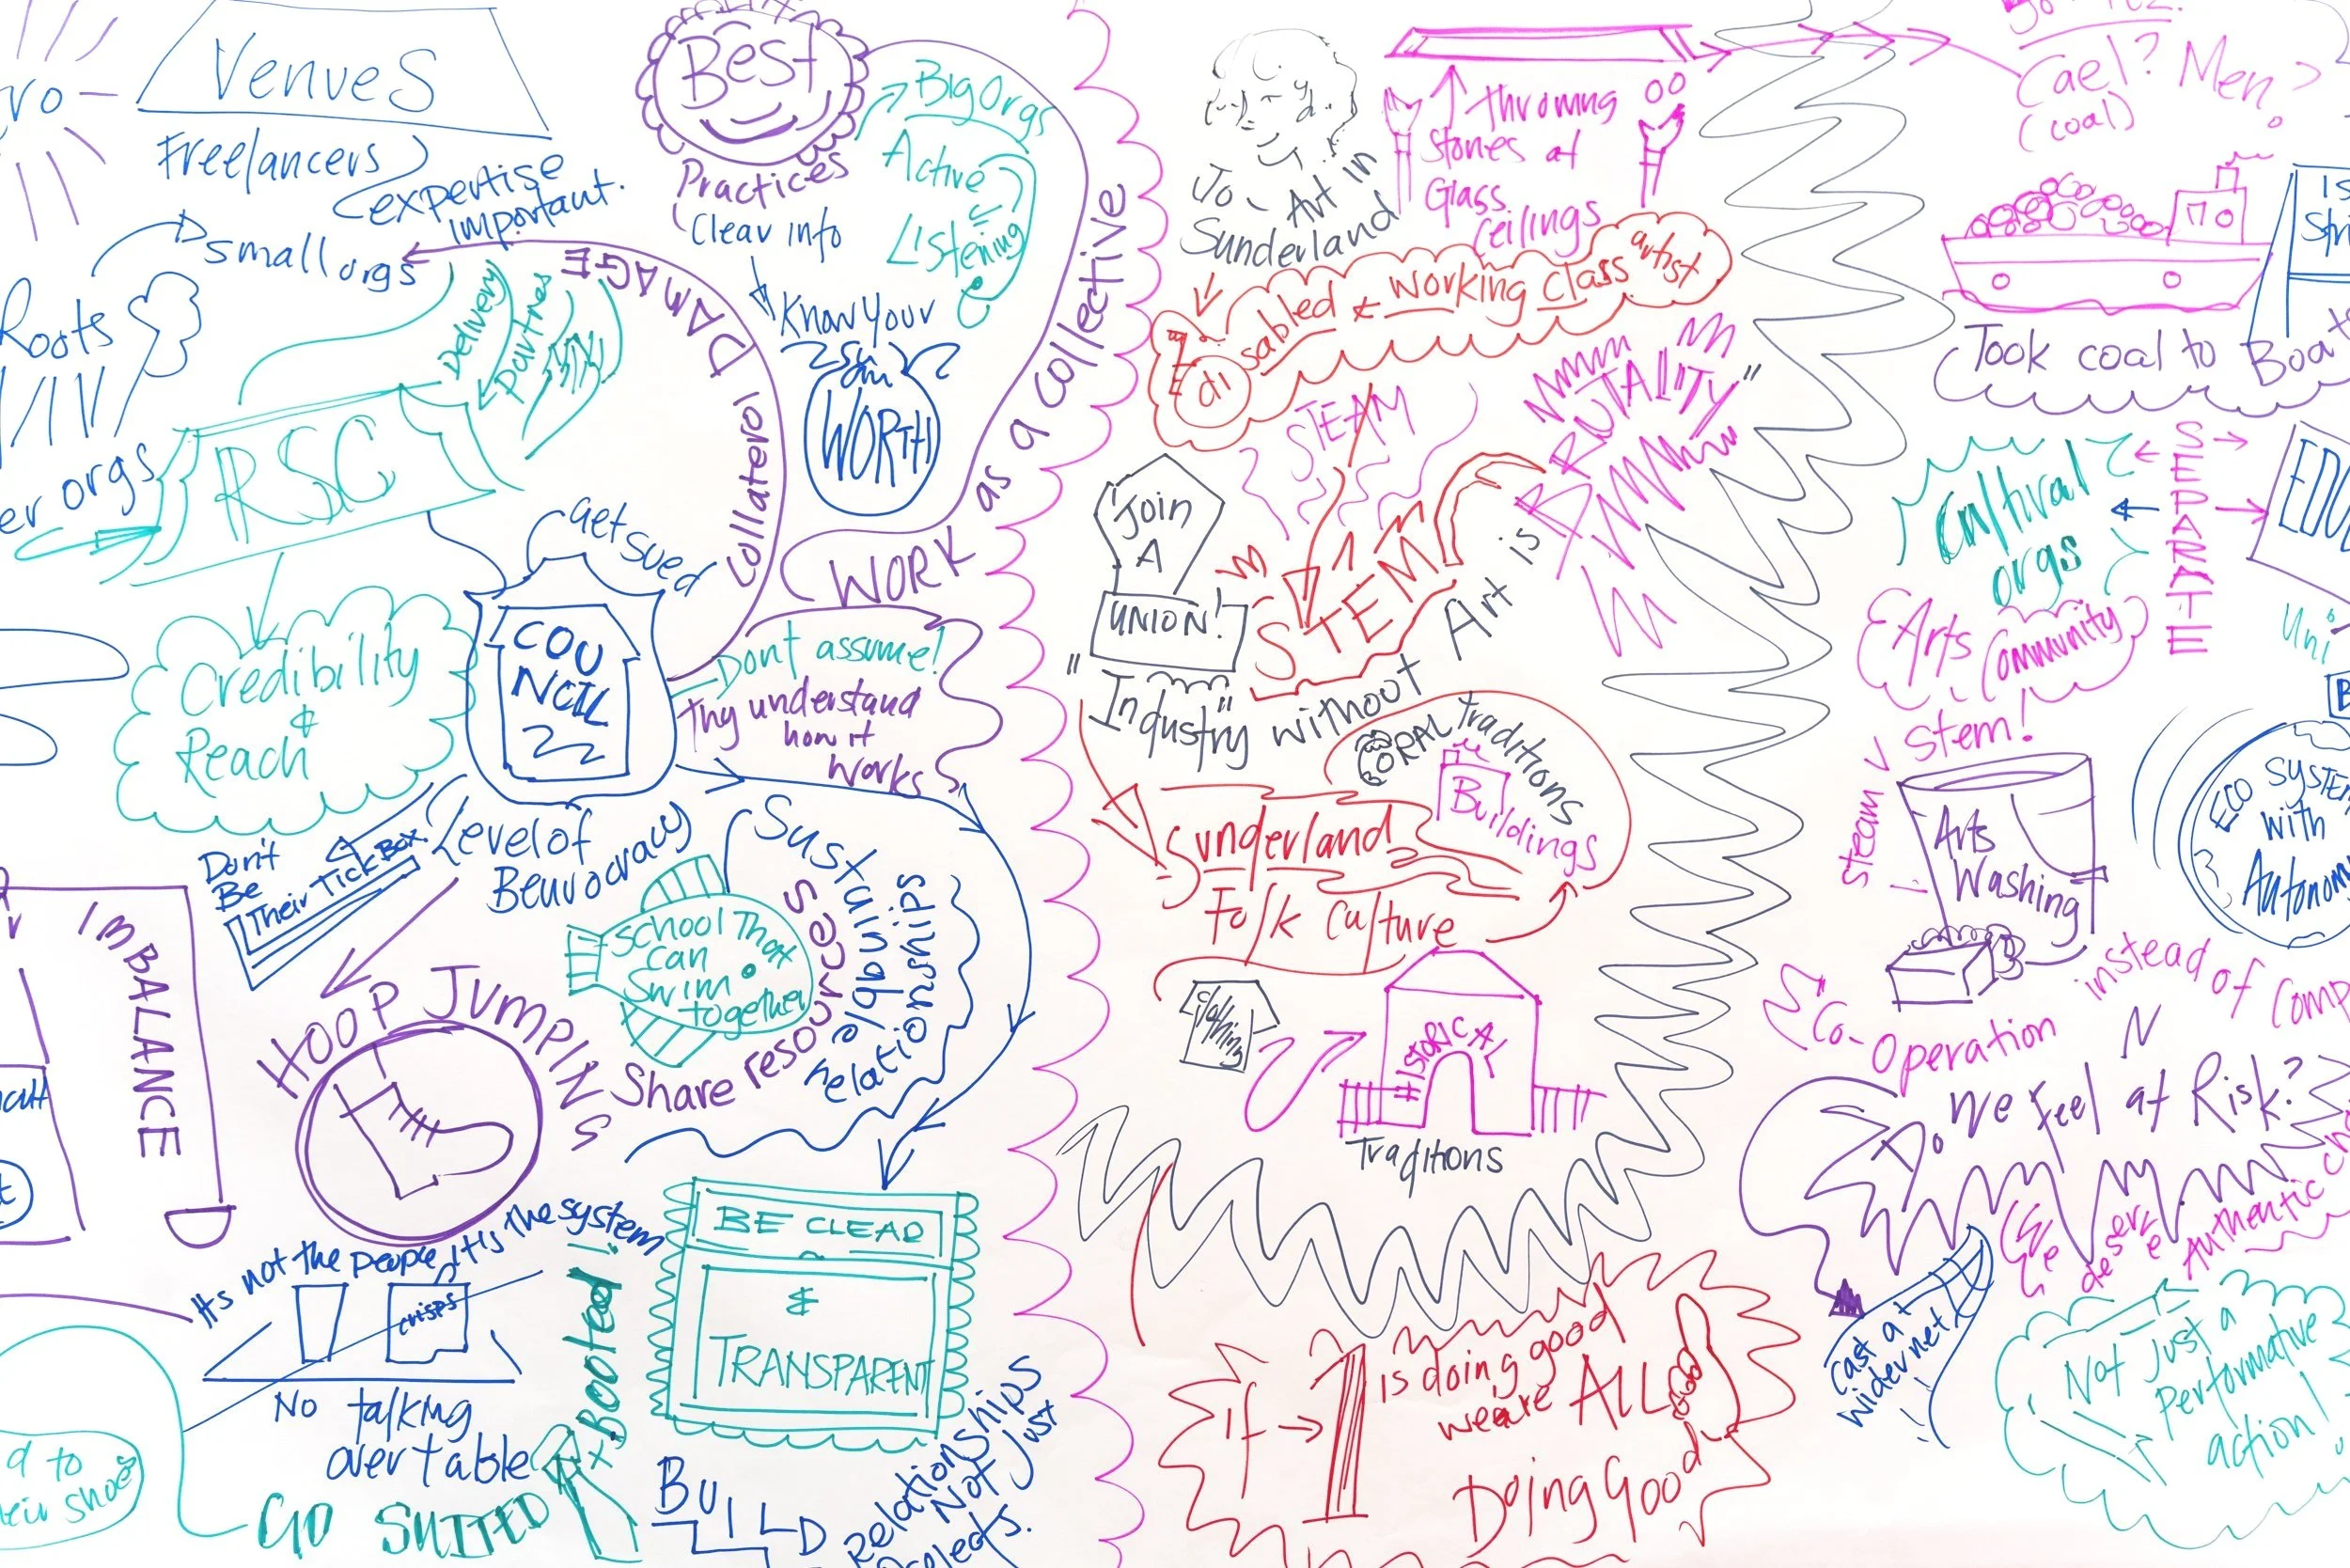 Venues
Freelancers
expertise
important.
small orgs
Roots
er orgs
Delivery
partners
RSC
Credibility
&
Reach
Best
Practices
Clear info
Know Your
WORTH
Big Orgs
Active
Listening
Collaterol DAMAGE
WORK as a collective
Get sued
COU
NCIL
Dont assume!
Thy understand
how it
works
Level of
Beurocracy
Don't
Be
Their Tick Box
IMBALANCE
HOOP JUMPING
School That
can
Swim
together
Share resources
Sustainable
relationships
Its not the people, it's the system
crisps
No talking
over table
GO SUITED
x Booted!
d to
their shoes
BE CLEAR
&
TRANSPARENT
BUILD
Relationships
Not Just
Projects.
Jo - Art in
Sunderland
throwing
stones at
Glass
Ceilings
disabled & working class artist
STEAM
STEM
Join
A
UNION!
"Industry" without Art is BRUTALITY"
ORAL Traditions
Buildings
Sunderland
Folk Culture
clothing
HISTORICAL
Traditions
If → 1 is doing good
we are ALL
Doing Good
Cael? Men?
(coal)
Took coal to Boa
Cultural
orgs
SEPARATE
EDU
Uni
Arts Community
Steam V Stem!
Arts
Washing
Eco SYSTEM
with
Autonom
Co-Operation
instead of Comp
Do We Feel at Risk?
Cast at
wider net!
We deserve Authentic
Not Just a
Performative
action!